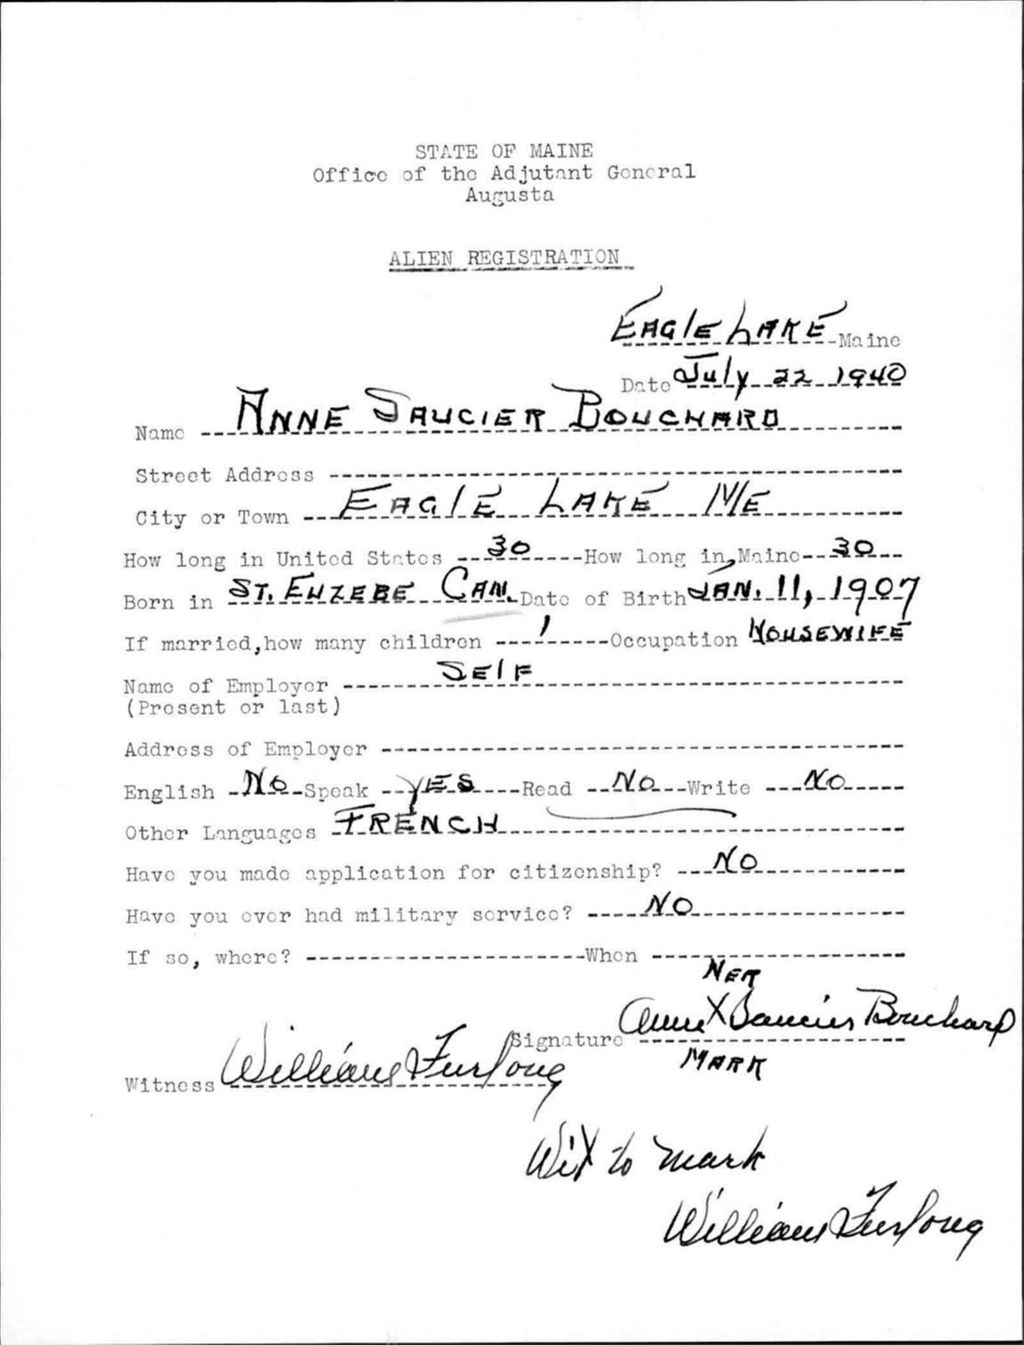 STATE OF MAINE
Office of the Adjutant General
Augusta
ALIEN REGISTRATION
EAGlE LAKE Maine
Date July 22 1940
Name ANNE SAUCIER BOUCHARD
Street Address
City or Town EAGlE LAKE ME
How long in United States 30 How long in Maine 30
Born in ST. EUZEBE CAN. Date of Birth JAN. 11, 1907
If married, how many children 1 Occupation HOUSEWIFE
Name of Employer SElF
(Present or last)
Address of Employer
English No Speak yES Read No Write No
Other Languages FRENCH
Have you made application for citizenship? NO
Have you ever had military service? NO
If so, where? When
HER
Signature Anne X Saucier Bouchard
MARK
Witness William Furlong
Wit to mark
William Furlong